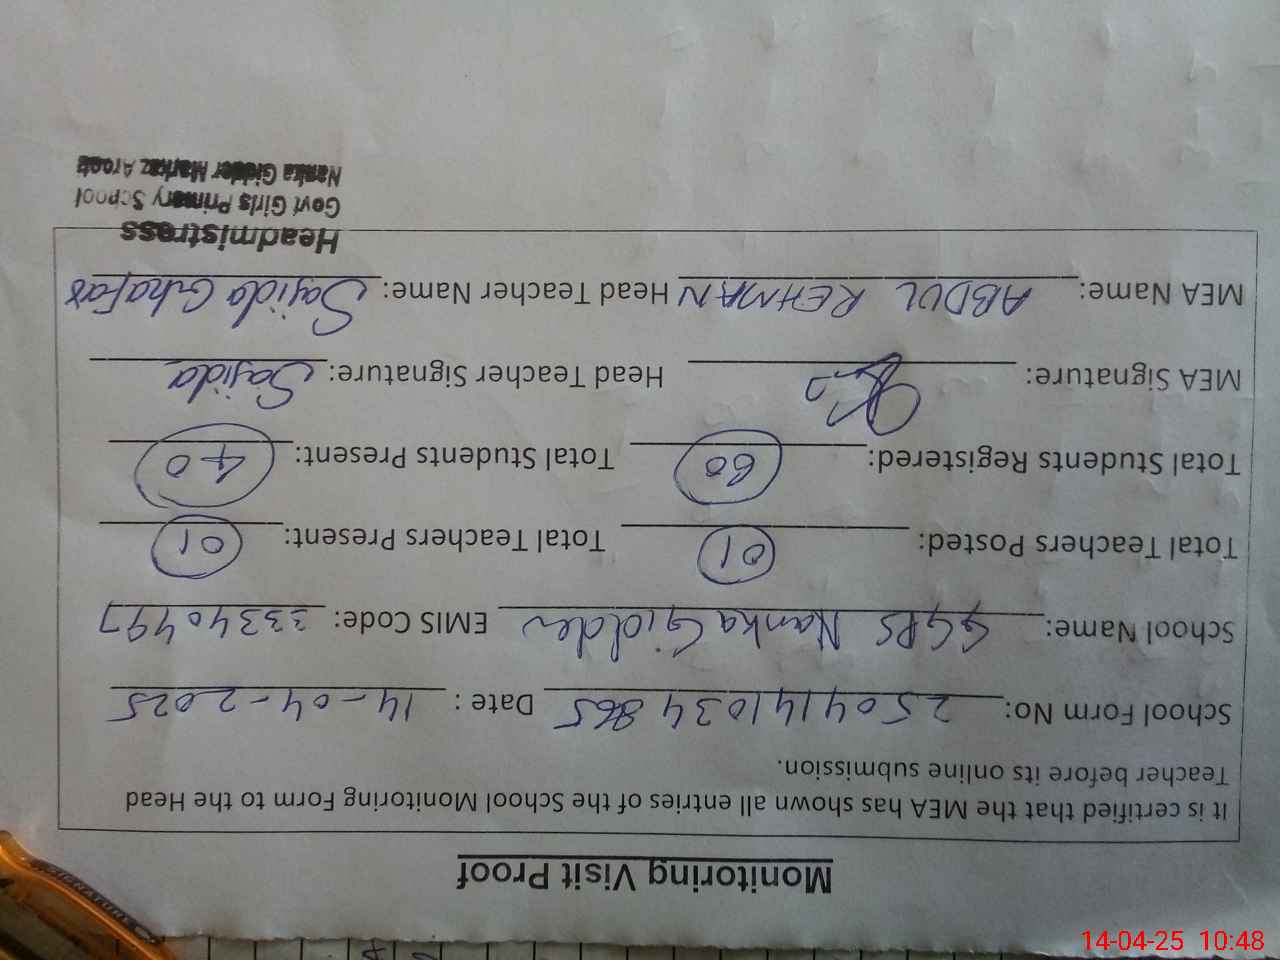 Monitoring Visit Proof
It is certified that the MEA has shown all entries of the School Monitoring Form to the Head
Teacher before its online submission.
School Form No: 2504141034865 Date : 14-04-2025
School Name: GGPS Nanka Gidder EMIS Code: 33340497
Total Teachers Posted: 01 Total Teachers Present: 01
Total Students Registered: 60 Total Students Present: 40
MEA Signature: Head Teacher Signature: Sajida
MEA Name: ABDUL REHMAN Head Teacher Name: Sajida Ghafar
Headmistress
Govt Girls Primary School
Nanka Gidder Markaz
SIGNATURE
14-04-25 10:48